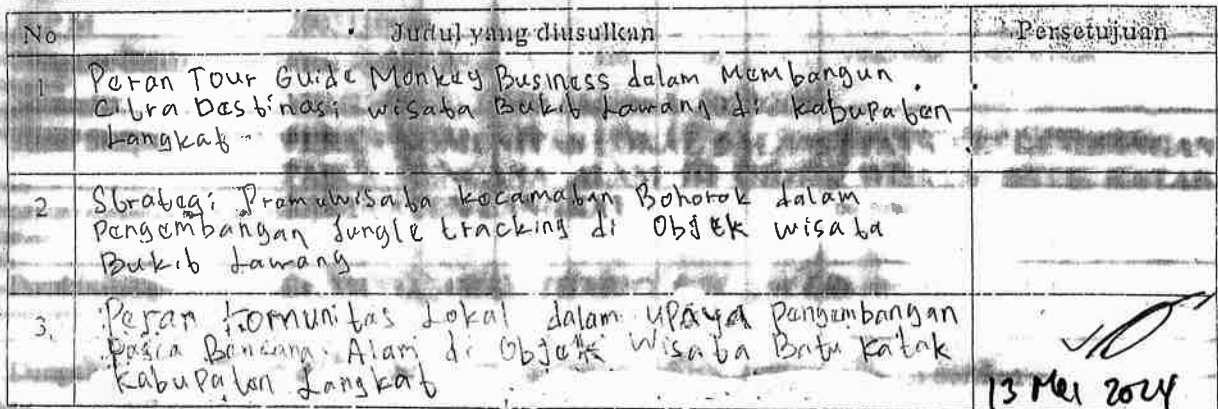 No Judul yang diusulkan Persetujuan
1 Peran Tour Guide Monkey Business dalam Membangun
Citra Destinasi wisata Bukit Lawang di kabupaten
Langkat
2 Strategi Pramuwisata kecamatan Bohorok dalam
Pengembangan Jungle tracking di Objek wisata
Bukit Lawang
3. Peran Komunitas Lokal dalam upaya Pengembangan
Pasca Bencana Alam di Objek Wisata Batu Katak
Kabupaten Langkat
13 Mei 2024